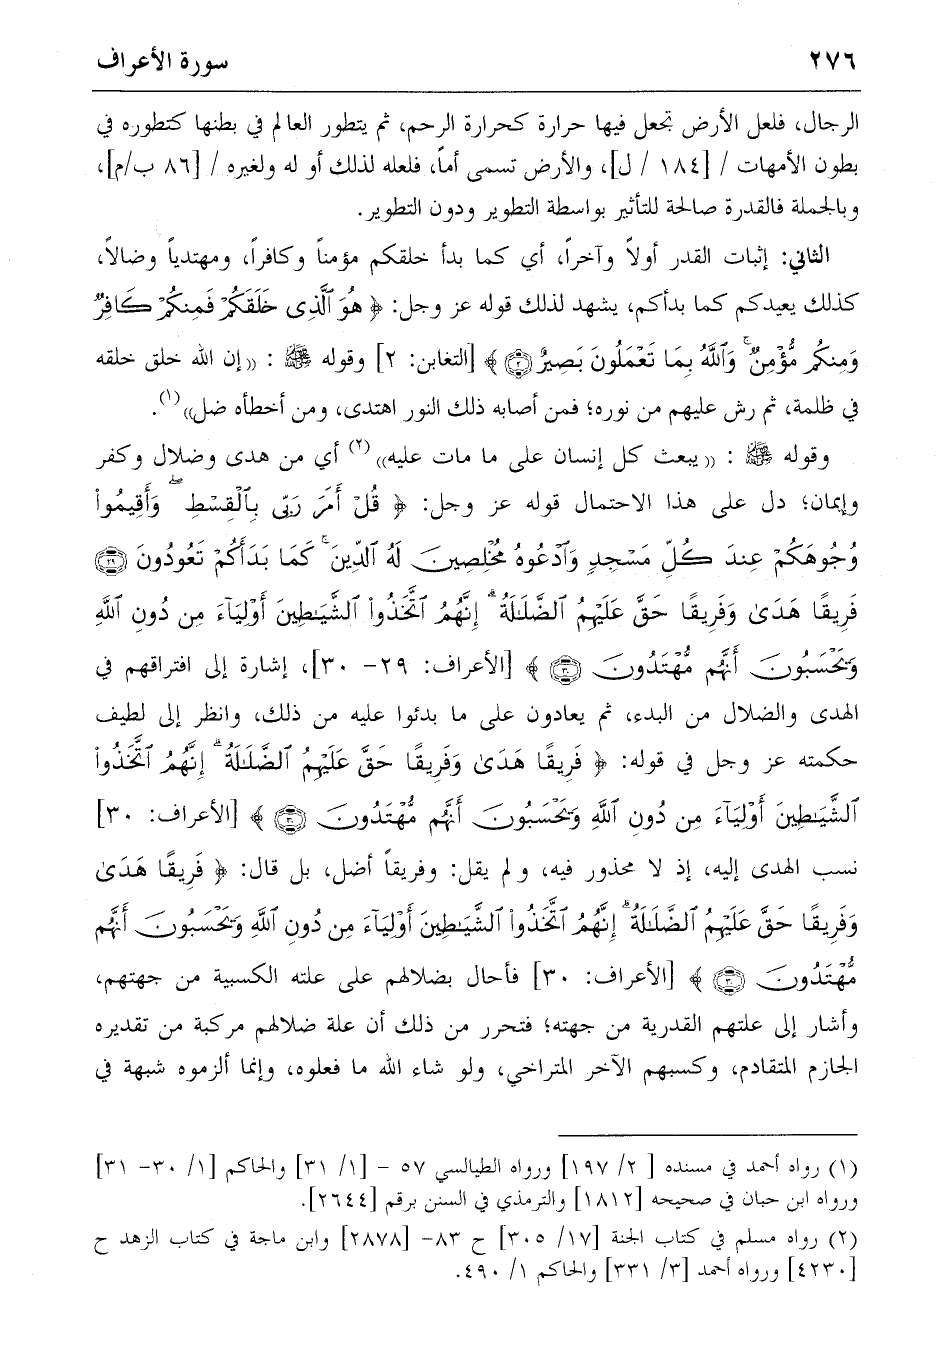 ٢٧٦ سورة الأعراف
الرجال، فلعل الأرض تجعل فيها حرارة كحرارة الرحم، ثم يتطور العالم في بطنها كتطوره في
بطون الأمهات / [١٨٤ / ل]، والأرض تسمى أماً، فلعله لذلك أو له ولغيره / [٨٦ ب/م]،
وبالجملة فالقدرة صالحة للتأثير بواسطة التطوير ودون التطوير.
الثاني: إثبات القدر أولاً وآخراً، أي كما بدأ خلقكم مؤمناً وكافراً، ومهتدياً وضالاً،
كذلك يعيدكم كما بدأكم، يشهد لذلك قوله عز وجل: ﴿ هُوَ ٱلَّذِى خَلَقَكُمْ فَمِنكُمْ كَافِرٌ
وَمِنكُم مُّؤْمِنٌ ۚ وَٱللَّهُ بِمَا تَعْمَلُونَ بَصِيرٌ ۝٢ ﴾ [التغابن: ٢] وقوله ﷺ : «إن الله خلق خلقه
في ظلمة، ثم رش عليهم من نوره؛ فمن أصابه ذلك النور اهتدى، ومن أخطأه ضل»(١).
وقوله ﷺ : «يبعث كل إنسان على ما مات عليه»(٢) أي من هدى وضلال وكفر
وإيمان؛ دل على هذا الاحتمال قوله عز وجل: ﴿ قُلْ أَمَرَ رَبِّى بِٱلْقِسْطِ ۖ وَأَقِيمُوا۟
وُجُوهَكُمْ عِندَ كُلِّ مَسْجِدٍ وَٱدْعُوهُ مُخْلِصِينَ لَهُ ٱلدِّينَ ۚ كَمَا بَدَأَكُمْ تَعُودُونَ ۝٢٩
فَرِيقًا هَدَىٰ وَفَرِيقًا حَقَّ عَلَيْهِمُ ٱلضَّلَـٰلَةُ ۗ إِنَّهُمُ ٱتَّخَذُوا۟ ٱلشَّيَـٰطِينَ أَوْلِيَآءَ مِن دُونِ ٱللَّهِ
وَيَحْسَبُونَ أَنَّهُم مُّهْتَدُونَ ۝٣٠ ﴾ [الأعراف: ٢٩- ٣٠]، إشارة إلى افتراقهم في
الهدى والضلال من البدء، ثم يعادون على ما بدئوا عليه من ذلك، وانظر إلى لطيف
حكمته عز وجل في قوله: ﴿ فَرِيقًا هَدَىٰ وَفَرِيقًا حَقَّ عَلَيْهِمُ ٱلضَّلَـٰلَةُ ۗ إِنَّهُمُ ٱتَّخَذُوا۟
ٱلشَّيَـٰطِينَ أَوْلِيَآءَ مِن دُونِ ٱللَّهِ وَيَحْسَبُونَ أَنَّهُم مُّهْتَدُونَ ۝٣٠ ﴾ [الأعراف: ٣٠]
نسب الهدى إليه، إذ لا محذور فيه، ولم يقل: وفريقاً أضل، بل قال: ﴿ فَرِيقًا هَدَىٰ
وَفَرِيقًا حَقَّ عَلَيْهِمُ ٱلضَّلَـٰلَةُ ۗ إِنَّهُمُ ٱتَّخَذُوا۟ ٱلشَّيَـٰطِينَ أَوْلِيَآءَ مِن دُونِ ٱللَّهِ وَيَحْسَبُونَ أَنَّهُم
مُّهْتَدُونَ ۝٣٠ ﴾ [الأعراف: ٣٠] فأحال بضلالهم على علته الكسبية من جهتهم،
وأشار إلى علتهم القدرية من جهته؛ فتحرر من ذلك أن علة ضلالهم مركبة من تقديره
الجازم المتقادم، وكسبهم الآخر المتراخي، ولو شاء الله ما فعلوه، وإنما ألزموه شبهة في
(١) رواه أحمد في مسنده [ ٢/ ١٩٧] ورواه الطيالسي ٥٧ - [١/ ٣١] والحاكم [١/ ٣٠- ٣١]
ورواه ابن حبان في صحيحه [١٨١٢] والترمذي في السنن برقم [٢٦٤٤].
(٢) رواه مسلم في كتاب الجنة [١٧/ ٣٠٥] ح ٨٣- [٢٨٧٨] وابن ماجة في كتاب الزهد ح
[٤٢٣٠] ورواه أحمد [٣/ ٣٣١] والحاكم ١/ ٤٩٠.